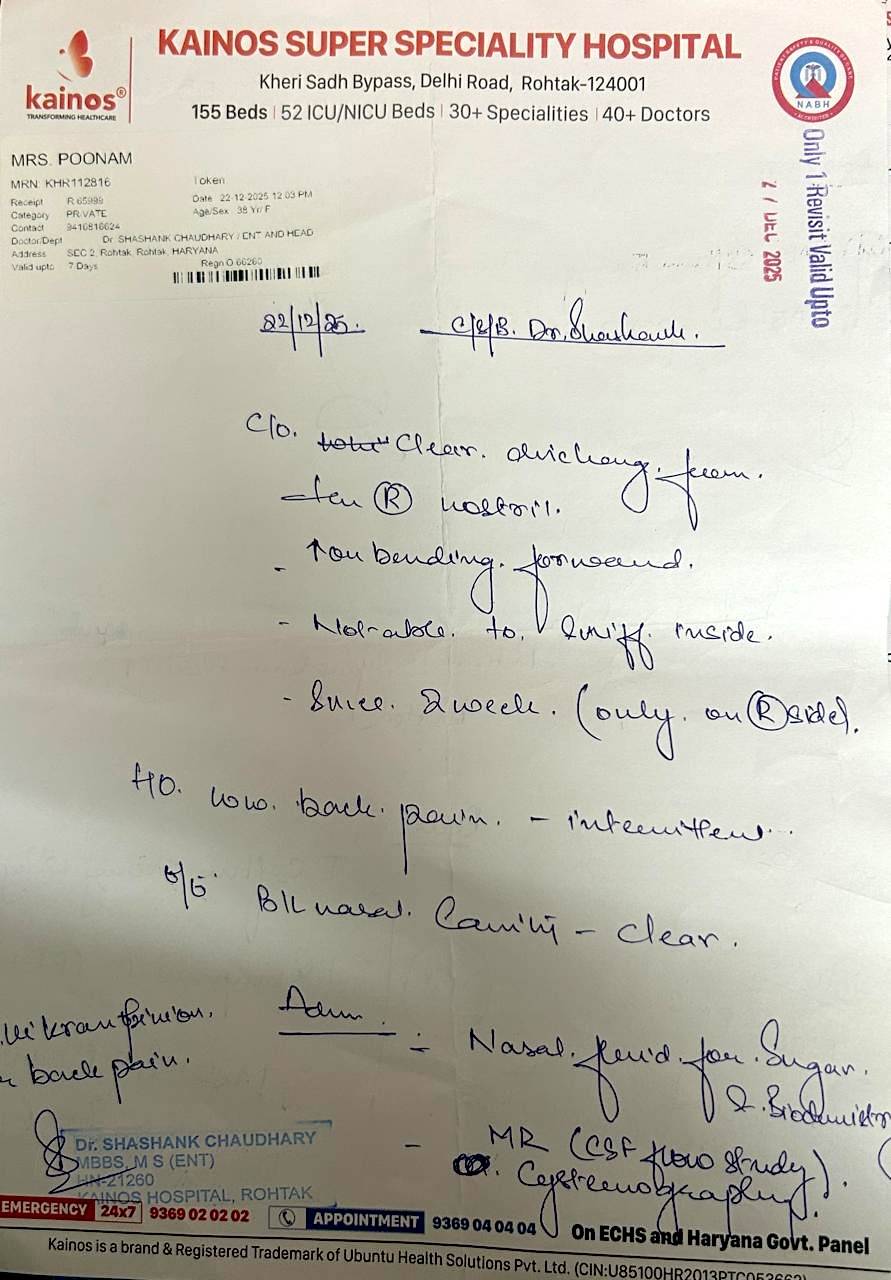 KAINOS SUPER SPECIALITY HOSPITAL
kainos®
TRANSFORMING HEALTHCARE
Kheri Sadh Bypass, Delhi Road, Rohtak-124001
155 Beds | 52 ICU/NICU Beds | 30+ Specialities | 40+ Doctors
NABH
Only 1 Revisit Valid Upto
27 DEC 2025
MRS. POONAM
MRN: KHR112816 Token
Receipt R 65999 Date 22-12-2025 12:03 PM
Category PRIVATE Age/Sex 38 Yr/F
Contact 9416816624
Doctor/Dept Dr SHASHANK CHAUDHARY / ENT AND HEAD
Address SEC 2, Rohtak, Rohtak, HARYANA
Valid upto 7 Days Regn O 66260
22/12/25. C/S/B. Dr. Shashank.
C/O. Clear. from.
Ⓡ nostril.
- ↑ on bending. forward.
- Not able. to. sniff. inside.
- Since. 2 week. (only. on Ⓡ side).
H/O. low. back. pain. - intermittent
O/E B/L nasal. Cavity - clear.
Adm
- Nasal. fluid. for. Sugar.
& Biochemistry
- MR (CSF flow study)
Cysternography.
opinion.
back pain.
Dr. SHASHANK CHAUDHARY
MBBS, M S (ENT)
HN-21260
KAINOS HOSPITAL, ROHTAK
EMERGENCY 24x7 9369 02 02 02 APPOINTMENT 9369 04 04 04 On ECHS and Haryana Govt. Panel
Kainos is a brand & Registered Trademark of Ubuntu Health Solutions Pvt. Ltd. (CIN:U85100HR2013PTC053662)